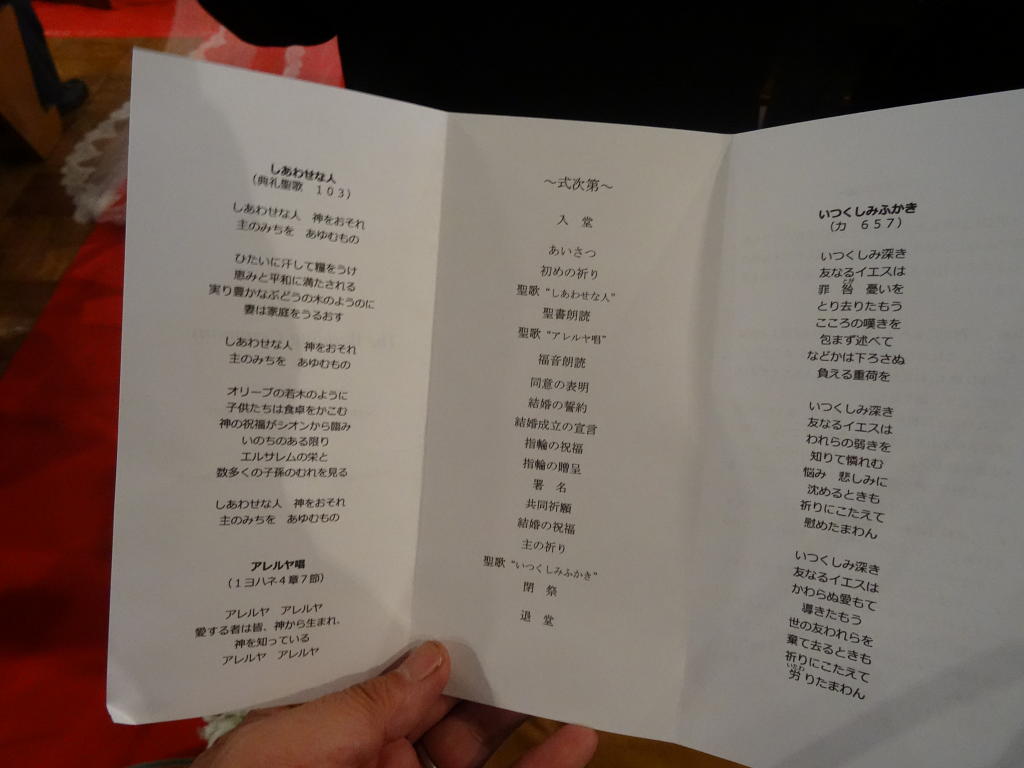 しあわせな人
（典礼聖歌　１０３）
しあわせな人　神をおそれ
主のみちを　あゆむもの
ひたいに汗して糧をうけ
恵みと平和に満たされる
実り豊かなぶどうの木のようのに
妻は家庭をうるおす
しあわせな人　神をおそれ
主のみちを　あゆむもの
オリーブの若木のように
子供たちは食卓をかこむ
神の祝福がシオンから臨み
いのちのある限り
エルサレムの栄と
数多くの子孫のむれを見る
しあわせな人　神をおそれ
主のみちを　あゆむもの
アレルヤ唱
（１ヨハネ４章７節）
アレルヤ　アレルヤ
愛する者は皆、神から生まれ、
神を知っている
アレルヤ　アレルヤ
～式次第～
入　堂
あいさつ
初めの祈り
聖歌“しあわせな人”
聖書朗読
聖歌“アレルヤ唱”
福音朗読
同意の表明
結婚の誓約
結婚成立の宣言
指輪の祝福
指輪の贈呈
署　名
共同祈願
結婚の祝福
主の祈り
聖歌“いつくしみふかき”
閉　祭
退　堂
いつくしみふかき
（カ　６５７）
いつくしみ深き
友なるイエスは
罪　咎　憂いを
とり去りたもう
こころの嘆きを
包まず述べて
などかは下ろさぬ
負える重荷を
いつくしみ深き
友なるイエスは
われらの弱きを
知りて憐れむ
悩み　悲しみに
沈めるときも
祈りにこたえて
慰めたまわん
いつくしみ深き
友なるイエスは
かわらぬ愛もて
導きたもう
世の友われらを
棄て去るときも
祈りにこたえて
労りたまわん